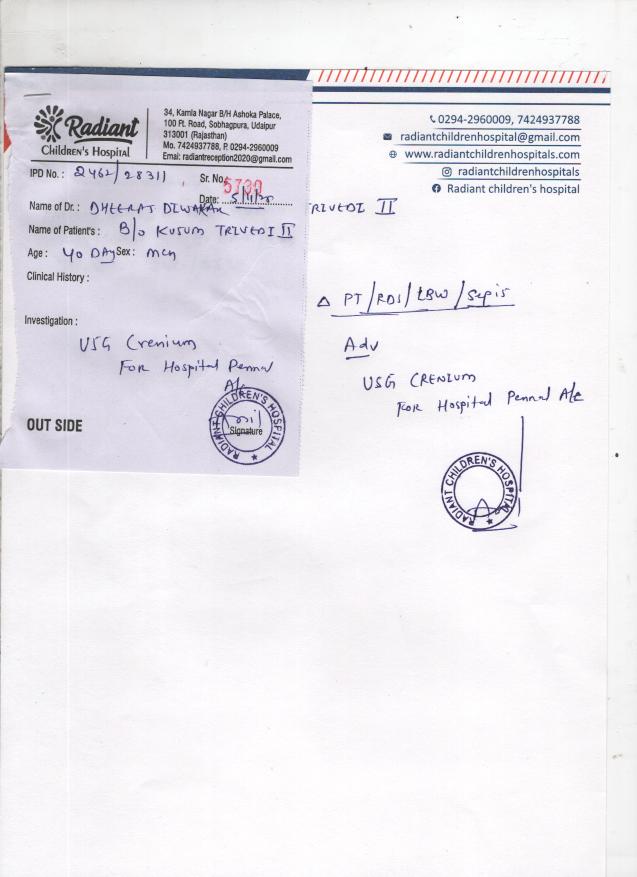 Radiant
Children's Hospital
34, Kamla Nagar B/H Ashoka Palace,
100 Ft. Road, Sobhagpura, Udaipur
313001 (Rajasthan)
Mo. 7424937788, P. 0294-2960009
Emai: radiantreception2020@gmail.com
IPD No. : 2462/28311
Sr. No. 5730
Date:
Name of Dr. : DHEERAJ DIWAKAR
Name of Patient's : B/o KUSUM TRIVEDI II
Age : 40 DAY Sex : mch
Clinical History :
Investigation :
USG Crenium
FOR Hospital Pennal
A/c
OUT SIDE
RADIANT CHILDREN'S HOSPITAL
Signature
0294-2960009, 7424937788
radiantchildrenhospital@gmail.com
www.radiantchildrenhospitals.com
radiantchildrenhospitals
Radiant children's hospital
TRIVEDI II
Δ PT/RDS/LBW/Sepis
Adv
USG CRENIUM
FOR Hospital Pennal A/c
RADIANT CHILDREN'S HOSPITAL